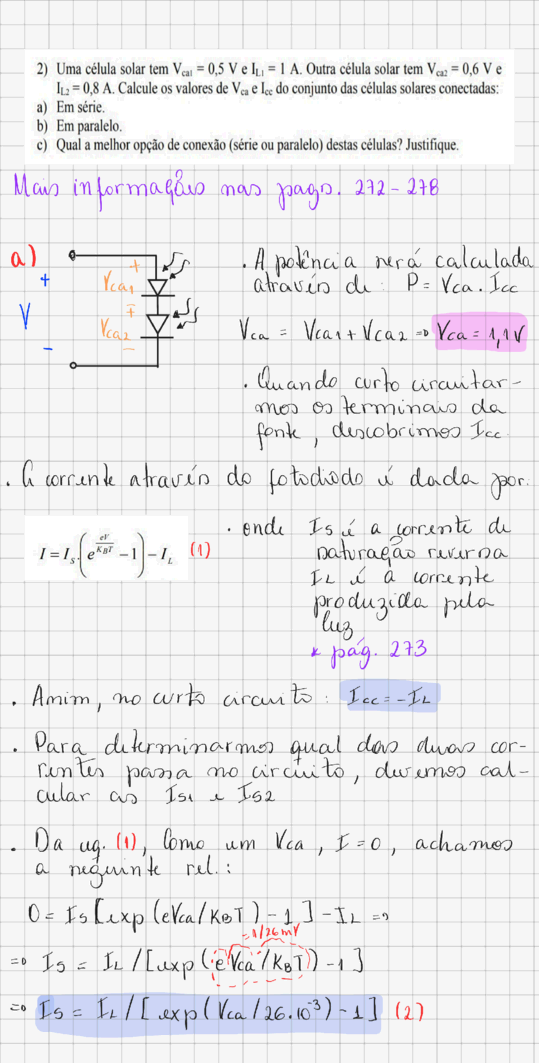 2) Uma célula solar tem Vca1 = 0,5 V e IL1 = 1 A. Outra célula solar tem Vca2 = 0,6 V e
IL2 = 0,8 A. Calcule os valores de Vca e Icc do conjunto das células solares conectadas:
a) Em série.
b) Em paralelo.
c) Qual a melhor opção de conexão (série ou paralelo) destas células? Justifique.
Mais informações nas pags. 272-278
a)
+
V
-
+
Vca1
-
+
Vca2
-
. A potência será calculada
através de: P = Vca . Icc
Vca = Vca1 + Vca2 => Vca = 1,1V
. Quando curto circuitar-
mos os terminais da
fonte, descobrimos Icc.
. A corrente através do fotodiodo é dada por:
I = Is.(e^(eV/KBT) - 1) - IL (1)
. onde Is é a corrente de
saturação reversa
IL é a corrente
produzida pela
luz
* pág. 273
. Assim, no curto circuito: Icc = -IL
. Para determinarmos qual das duas cor-
rentes passa no circuito, devemos cal-
cular as Is1 e Is2
. Da eq. (1), Como um Vca, I=0, achamos
a seguinte rel.:
0 = Is [exp (eVca/KBT) - 1] - IL =>
=1/26mV
=> Is = IL / [exp (eVca/KBT) - 1]
=> Is = IL / [exp (Vca / 26.10^-3) - 1] (2)